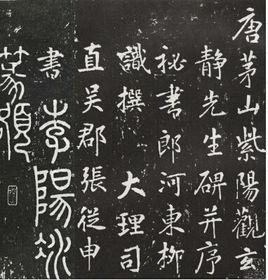 唐茅山紫陽觀玄
静先生碑并序
秘書郎河東柳
識撰 大理司
直吴郡張從申
書 李陽冰
篆額